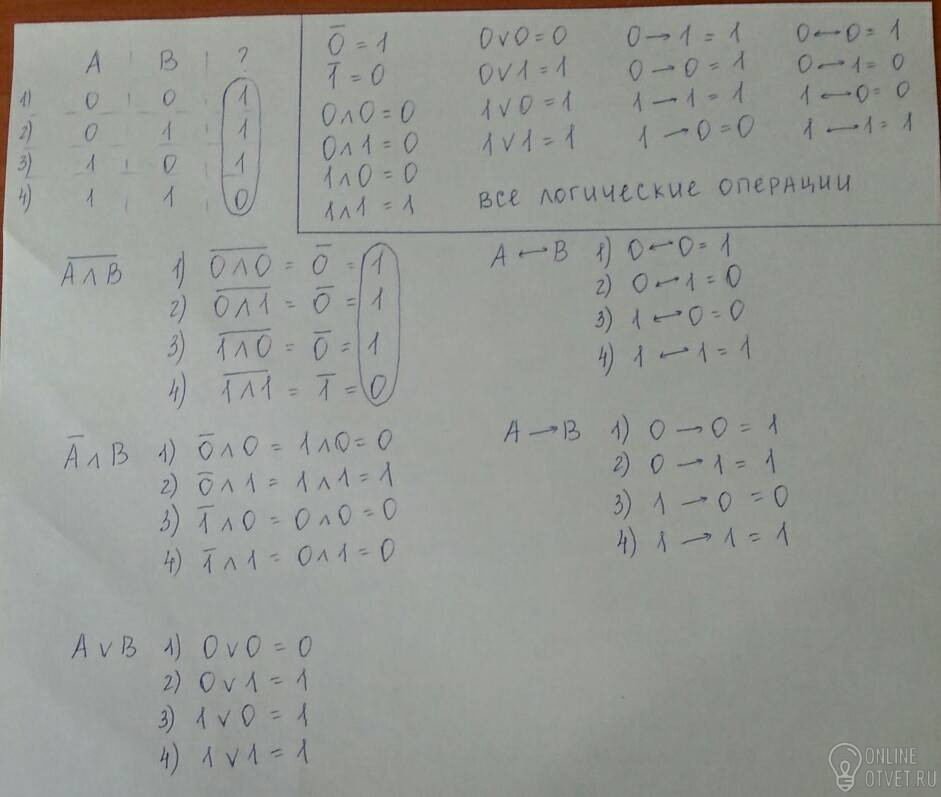 A B ?
1) 0 0 1
2) 0 1 1
3) 1 0 1
4) 1 1 0
0̅ = 1
1̅ = 0
0∧0 = 0
0∧1 = 0
1∧0 = 0
1∧1 = 1
0∨0 = 0
0∨1 = 1
1∨0 = 1
1∨1 = 1
0→1 = 1
0→0 = 1
1→1 = 1
1→0 = 0
0↔0 = 1
0↔1 = 0
1↔0 = 0
1↔1 = 1
ВСЕ ЛОГИЧЕСКИЕ ОПЕРАЦИИ
A̅ ̅∧̅ ̅B̅ 1) 0̅∧̅0̅ = 0̅ = 1
2) 0̅∧̅1̅ = 0̅ = 1
3) 1̅∧̅0̅ = 0̅ = 1
4) 1̅∧̅1̅ = 1̅ = 0
A̅∧B 1) 0̅∧0 = 1∧0 = 0
2) 0̅∧1 = 1∧1 = 1
3) 1̅∧0 = 0∧0 = 0
4) 1̅∧1 = 0∧1 = 0
A∨B 1) 0∨0 = 0
2) 0∨1 = 1
3) 1∨0 = 1
4) 1∨1 = 1
A↔B 1) 0↔0 = 1
2) 0↔1 = 0
3) 1↔0 = 0
4) 1↔1 = 1
A→B 1) 0→0 = 1
2) 0→1 = 1
3) 1→0 = 0
4) 1→1 = 1
ONLINE
OTVET.RU